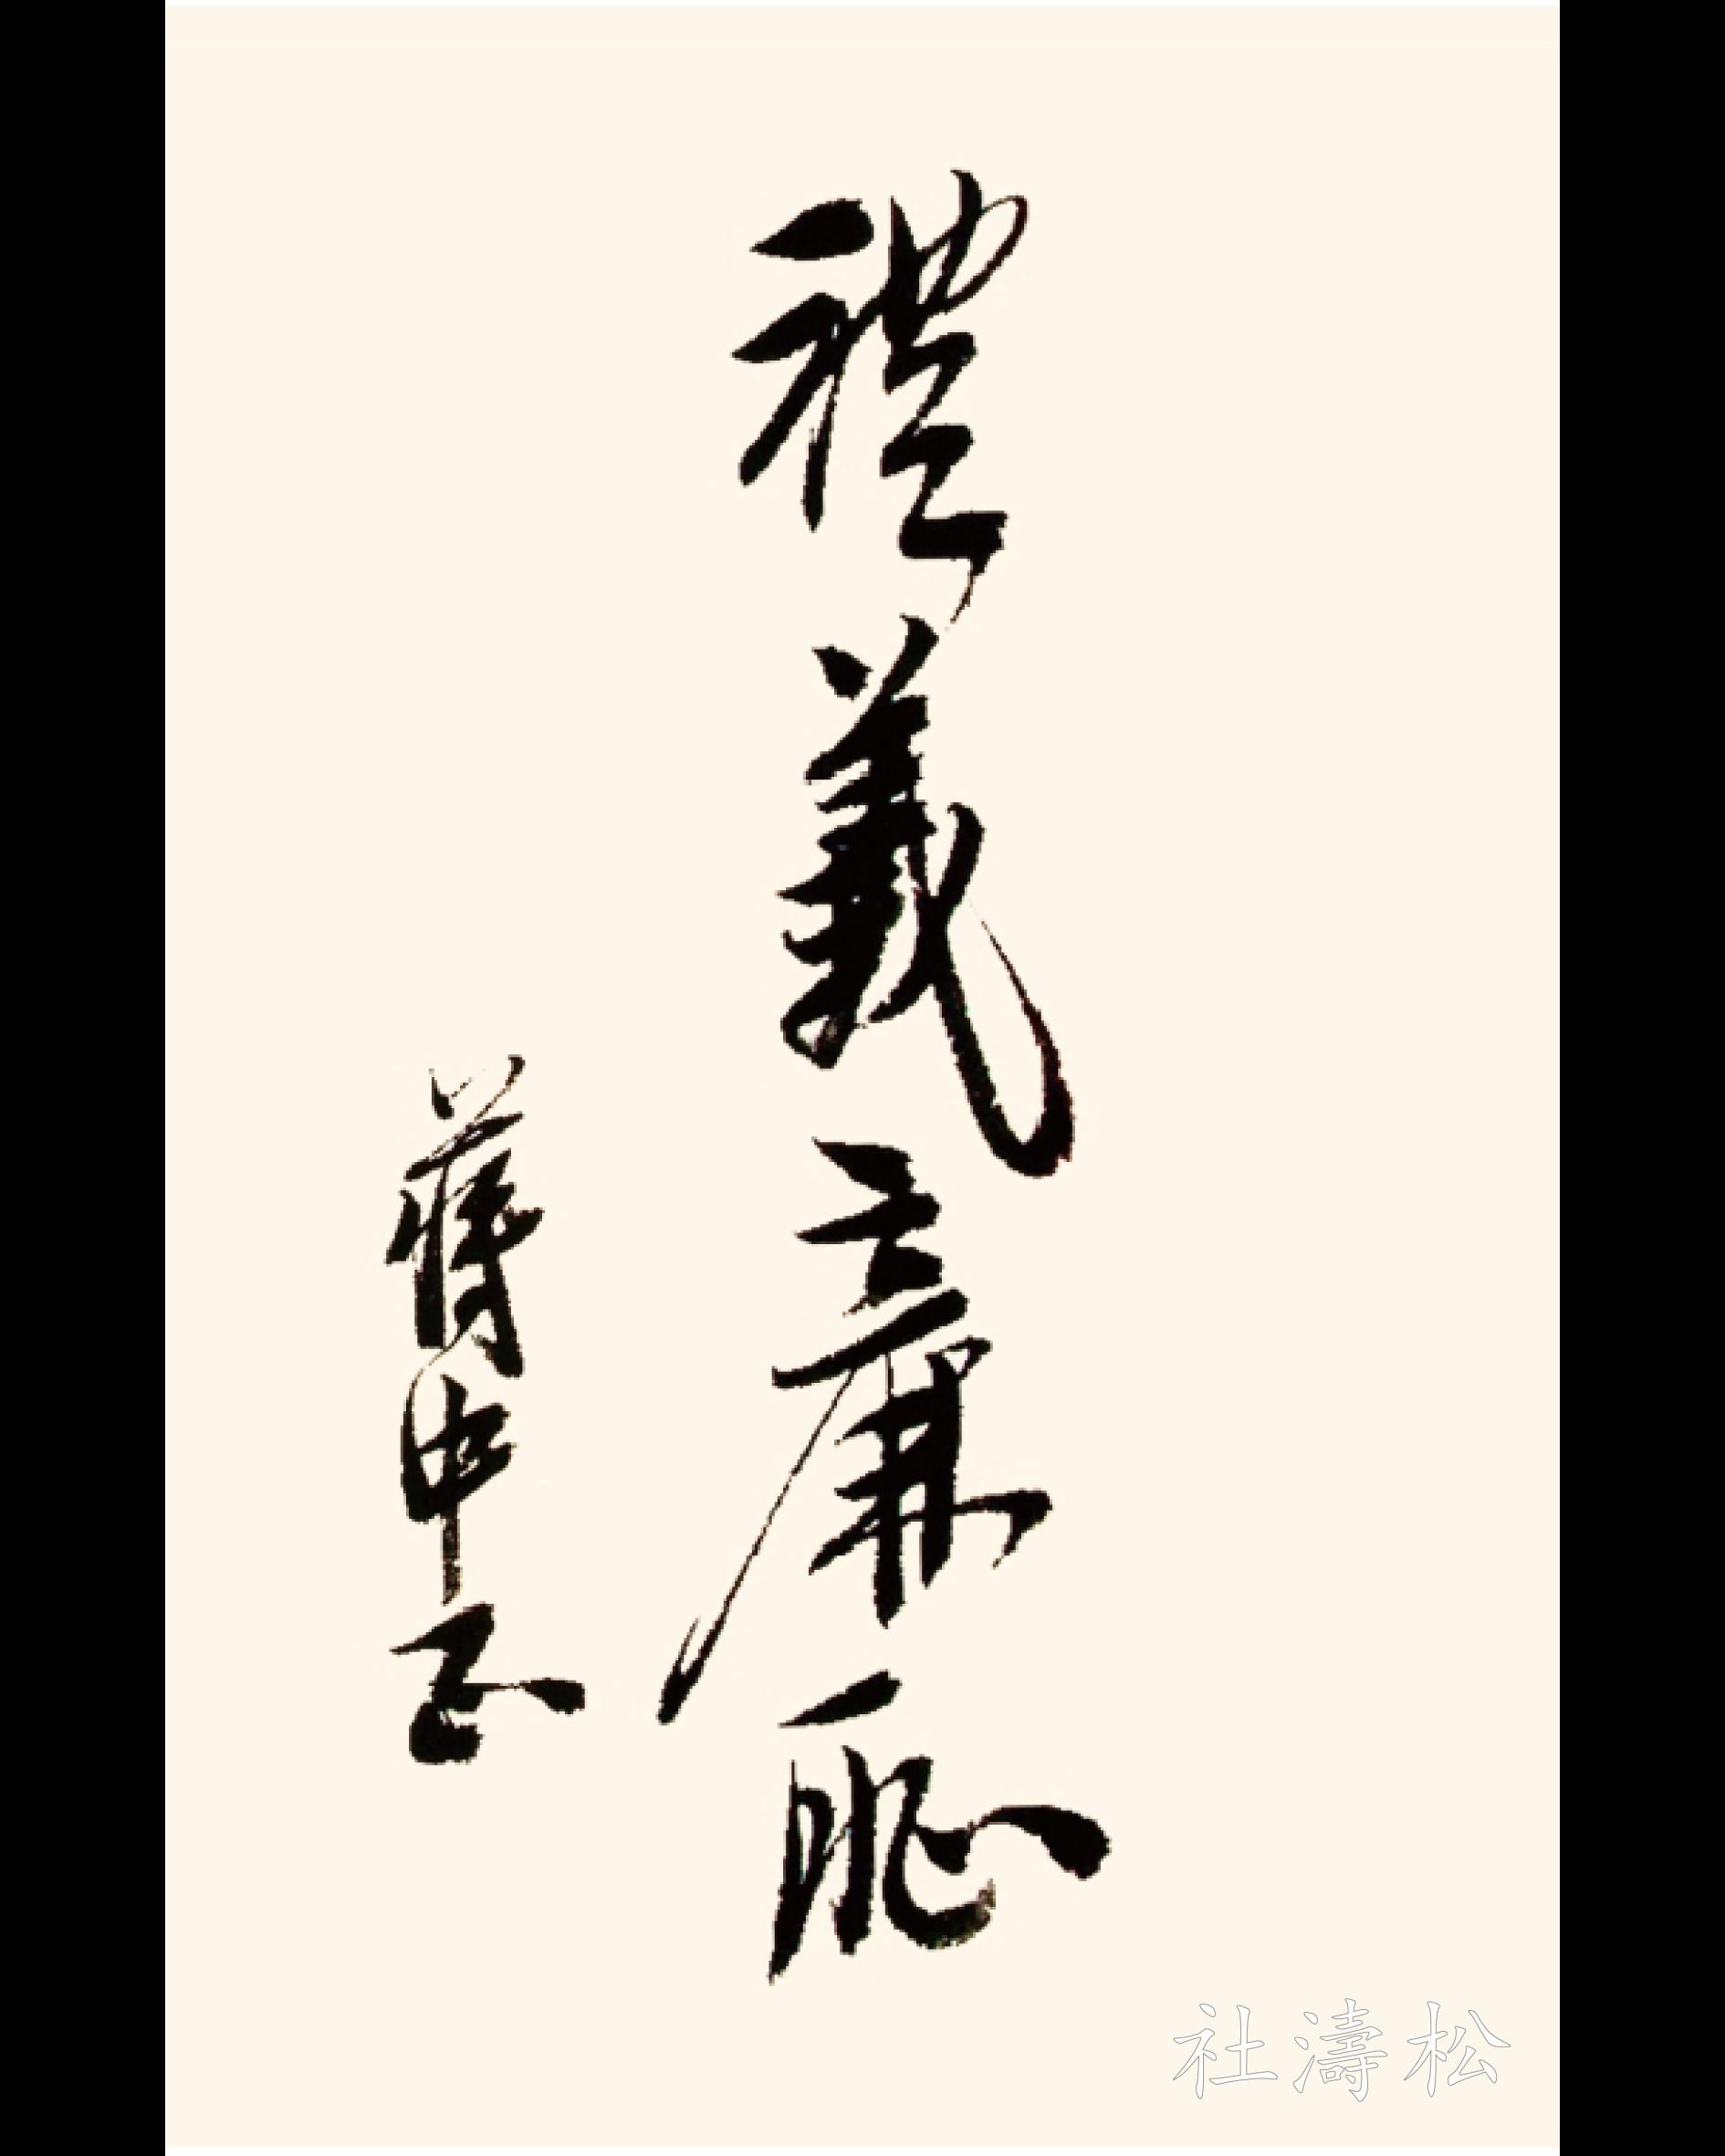 禮義廉恥
蔣中正
社濤松